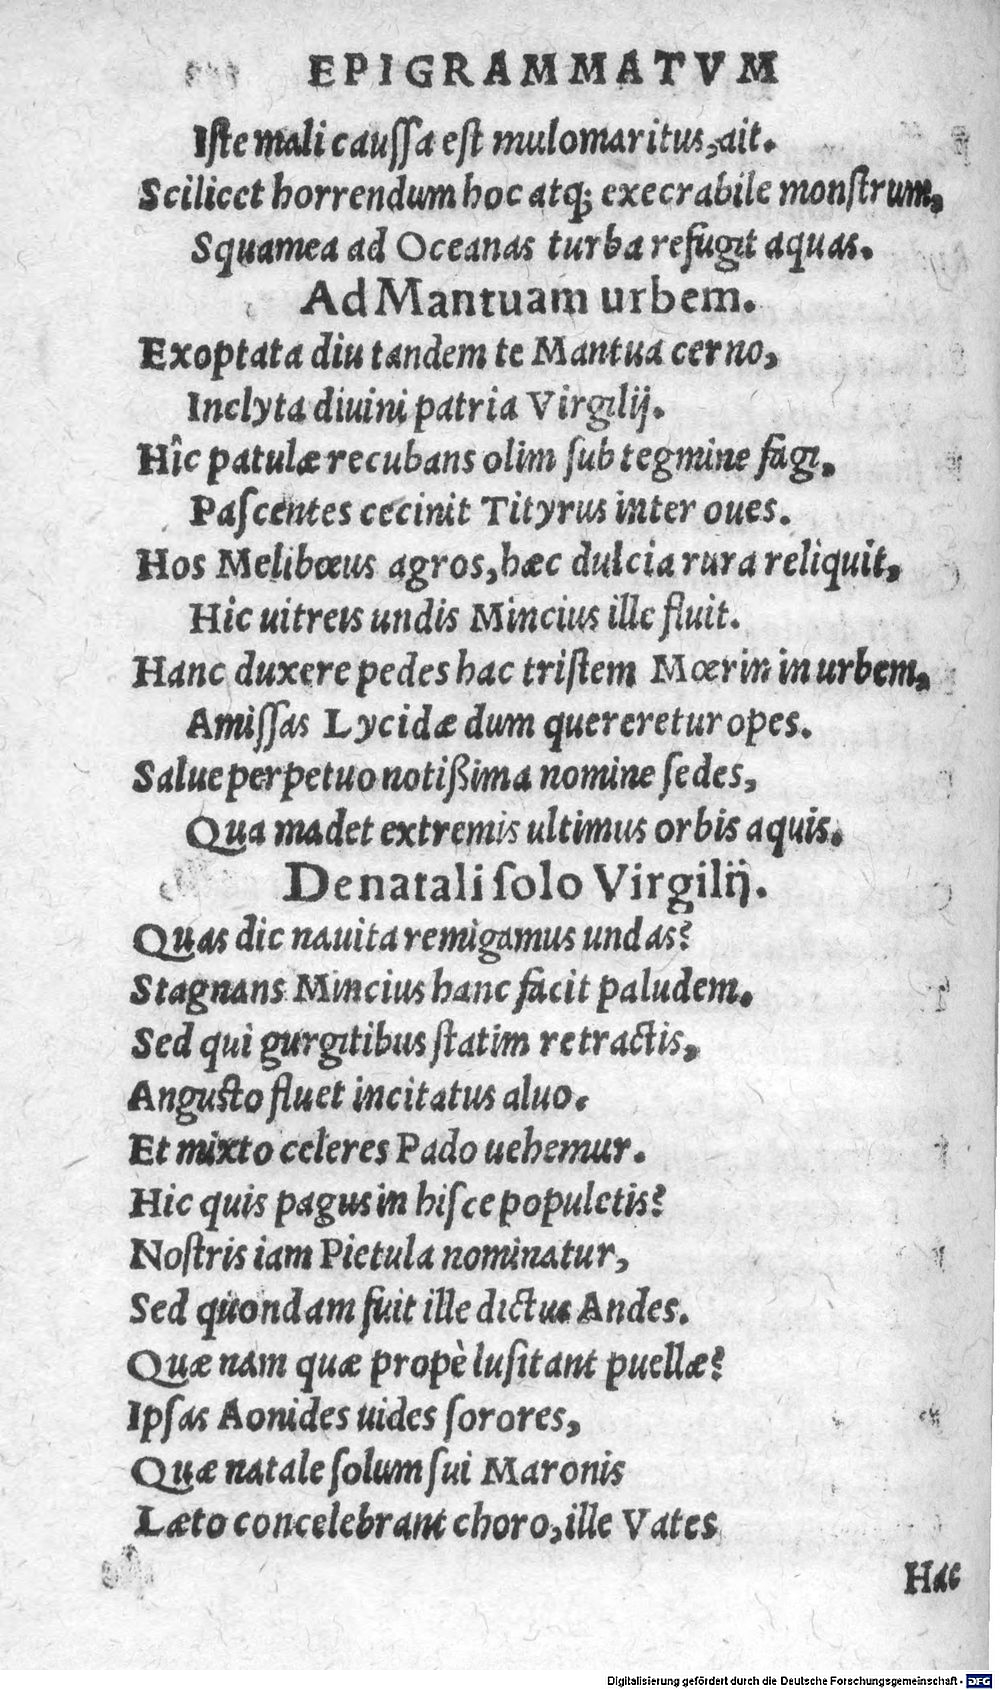 EPIGRAMMATVM
Iſte mali cauſſa eſt mulomaritus, ait.
Scilicet horrendum hoc atq; execrabile monſtrum,
Squamea ad Oceanas turba refugit aquas.
Ad Mantuam urbem.
Exoptata diu tandem te Mantua cerno,
Inclyta diuini patria Virgilij.
Hîc patulæ recubans olim ſub tegmine fagi,
Paſcentes cecinit Tityrus inter oues.
Hos Melibœus agros, hæc dulcia rura reliquit,
Hic uitreis undis Mincius ille fluit.
Hanc duxere pedes hac triſtem Mœrin in urbem,
Amiſſas Lycidæ dum quereretur opes.
Salue perpetuo notißima nomine ſedes,
Qua madet extremis ultimus orbis aquis.
De natali ſolo Virgilij.
Quas dic nauita remigamus undas?
Stagnans Mincius hanc facit paludem.
Sed qui gurgitibus ſtatim retractis,
Anguſto fluet incitatus aluo.
Et mixto celeres Pado uehemur.
Hic quis pagus in hiſce populetis?
Noſtris iam Pietula nominatur,
Sed quondam fuit ille dictus Andes.
Quæ nam quæ propè luſitant puellæ?
Ipſas Aonides uides ſorores,
Quæ natale ſolum ſui Maronis
Læto concelebrant choro, ille Vates
Hac
Digitalisierung gefördert durch die Deutsche Forschungsgemeinschaft - DFG